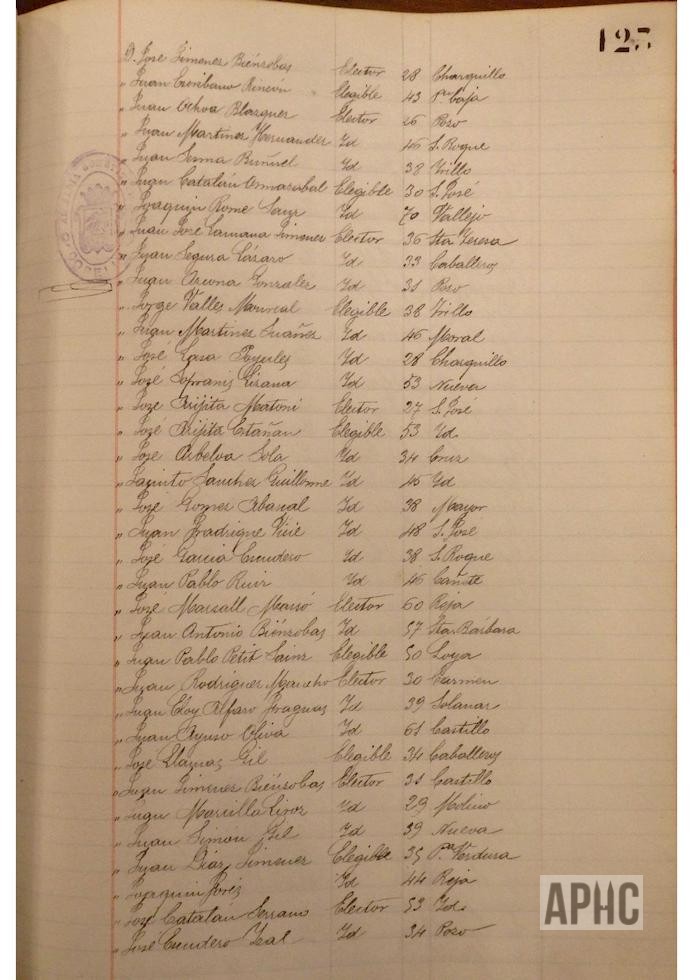 125
D. José Jimenez Biénzobas Elector 28 Charquillo
" Juan Escribano Rincón Elegible 43 Pza Caja
" Juan Ochoa Blazquez Elector 26 Pozo
" Juan Martinez Hernandez Id 46 S. Roque
" Juan Serma Buñuel Id 38 Trillo
" Juan Catalán Elegible 30 S. José
" Joaquin Rome Sanz Id 70 Vallejo
" Juan José Lamana Jimenez Elector 36 Sta Teresa
" Juan Segura Lázaro Id 33 Caballeros
" Juan Azcona Gonzalez Id 31 Pozo
" Jorge Valles Monreal Elegible 38 Trillo
" Juan Martinez Id 46 Moral
" José Id 28 Charquillo
" José Sofranis Lizana Id 53 Nueva
" José Arijita Matoni Elector 27 S. José
" José Arijita Elegible 53 Id.
" José Arbelva Sola Id 34 Cruz
" Jacinto Sanchez Guillorme Id 45 Id
" José Gomez Abascal Id 38 Mayor
" Juan Fradrique Id 48 S. José
" José Garcia Escudero Id 38 S. Roque
" Juan Pablo Ruiz Id 46 Cañete
" José Marsall Massó Elector 60 Reja
" Juan Antonio Biénzobas Id 57 Sta. Bárbara
" Juan Pablo Petit Sainz Elegible 50 Goya
" Juan Rodriguez Mancho Elector 30 Carmen
" Juan Eloy Alfaro Fraguas Id 39 Solanar
" Juan Ayuso Oliva Id 61 Castillo
" José Llaguas Gil Elegible 34 Caballeros
" Juan Jimenez Biénzobas Elector 31 Castillo
" Juan Marcilla Liroz Id 29 Molino
" Juan Simón Gil Id 39 Nueva
" Juan Diaz Jimenez Elegible 35 Pza Verdura
" Joaquin Id 44 Reja
" José Catalán Serrano Elector 53 Id.
" José Escudero Zeal Id 34 Pozo
APHC